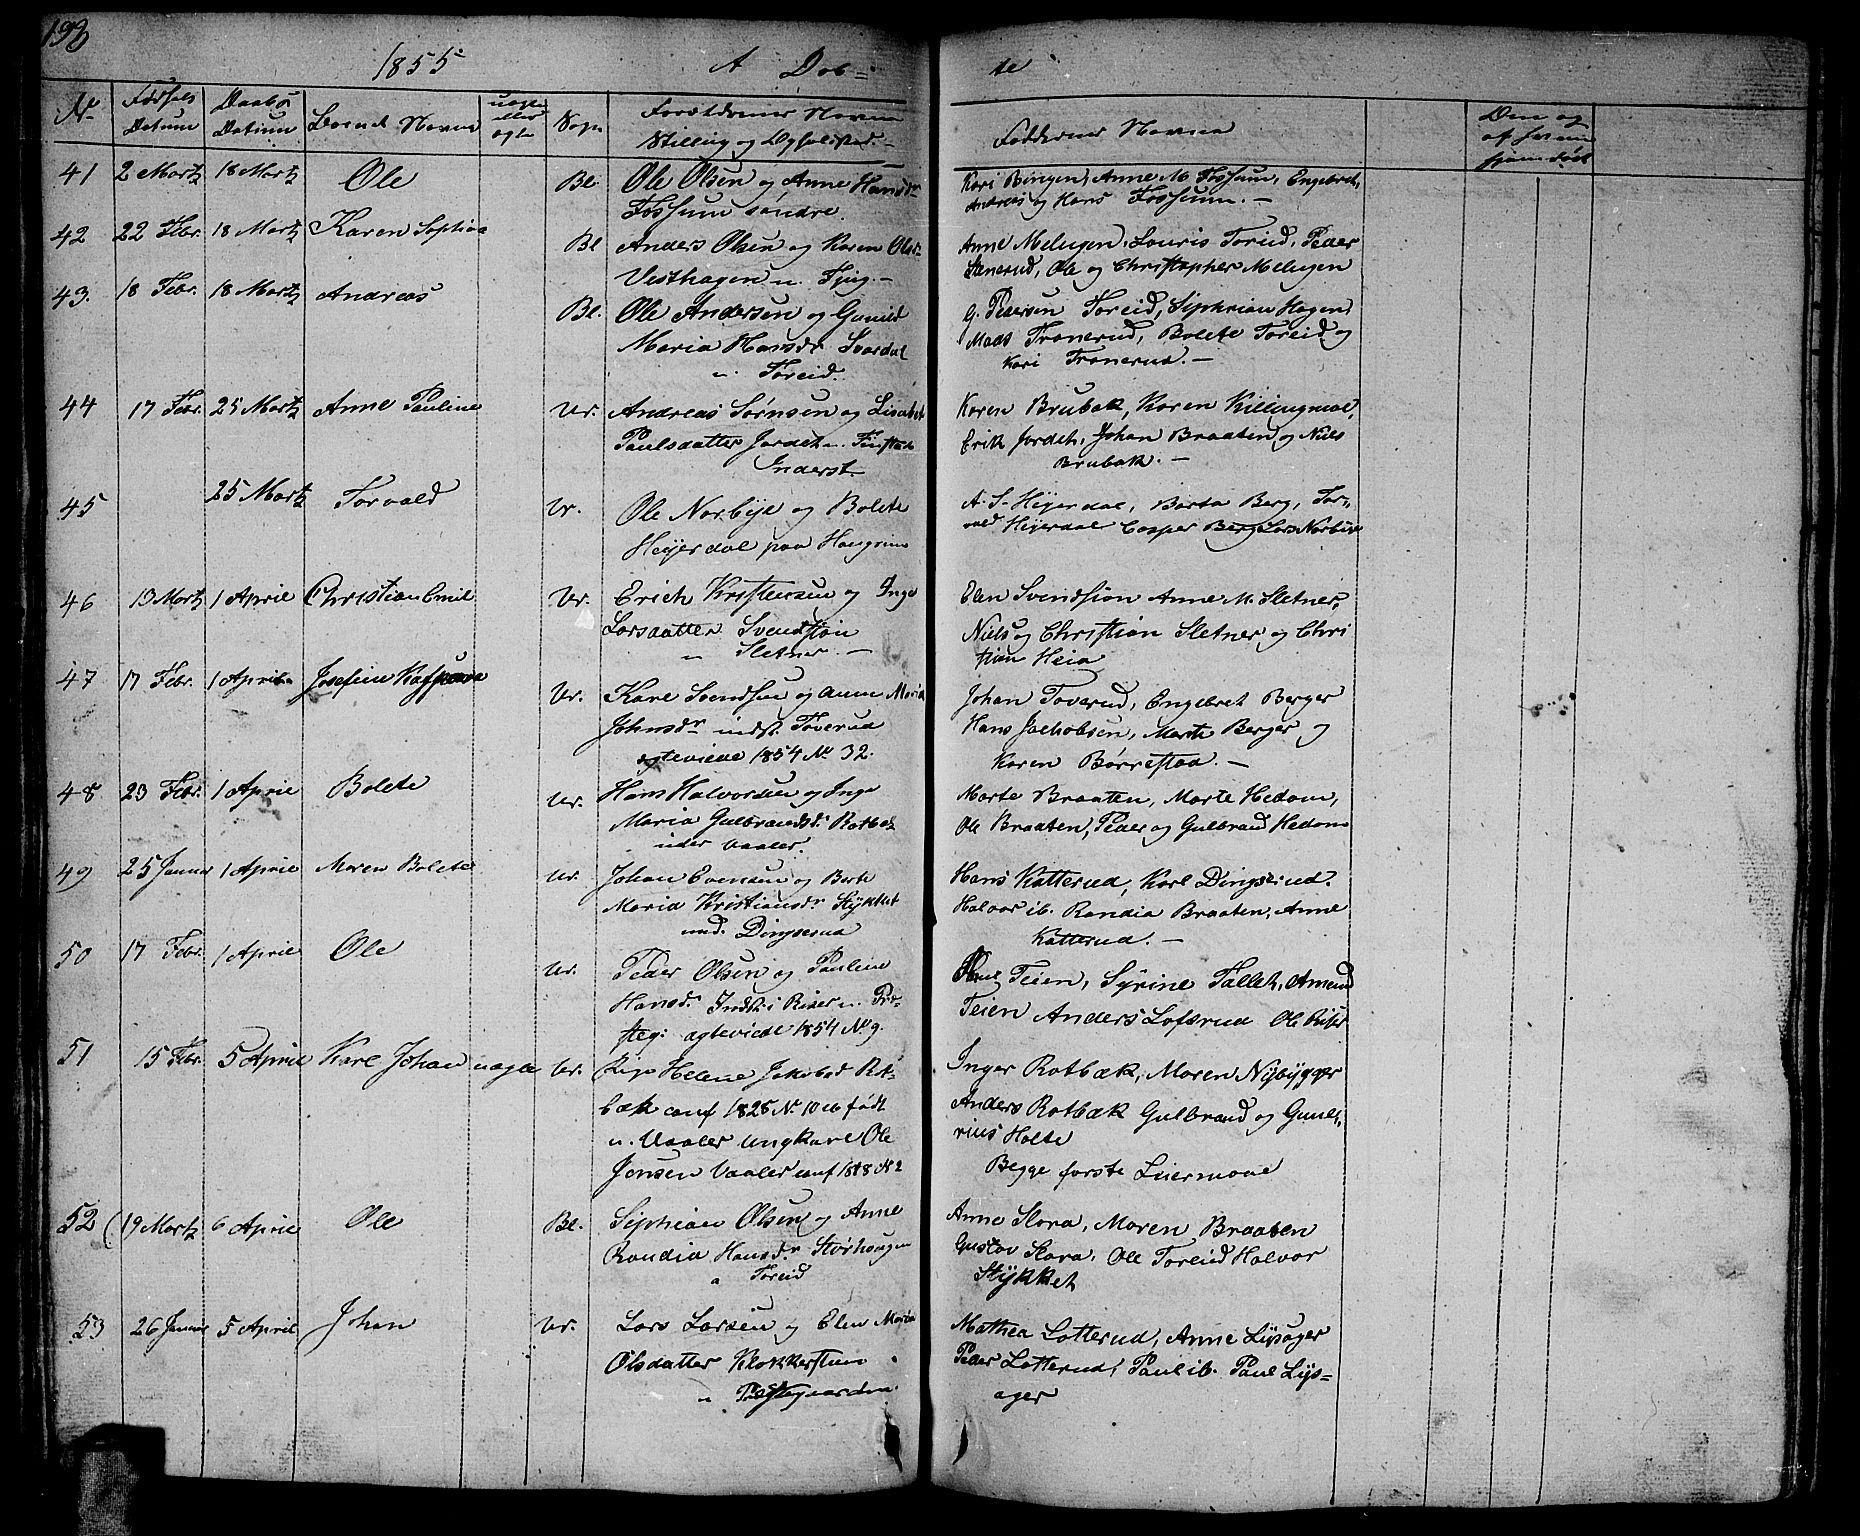 1855 A Døb= te
No Fødsels Datum Daabs Datium Barnets Navne uægte eller ægte Sogn Forældrenes Navne Stilling og Opholdsted. Faddernes Navne
41 2 Martz 18 Martz Ole Bl. Ole Olsen og Anne Hansdr
Fossum søndre.
Kari Bingen, Anne M. Fossum, Engebret,
Andreas og Hans Fossum. —
42 22 Febr. 18 Martz Karen Sophia Bl Anders Olsen og Karen Olsdr
Vesthagen u. Fjug. —
Anne Melugen, Louris Toreid, Peder
Stenerud, Ole og Christopher Melugen
43. 18 Febr. 18 Martz Andreas Bl. Ole Andersen og Gunild
Maria Hansdr Svardal
u. Toreid.
G. Pedersen Toreid, Siphrian Hagen,
Mads Tronerud, Bolete Toreid og
Kari Tronerud. —
44 17 Febr. 25 Martz Anne Pauline Vr. Andreas Sørnsen og Lisabet
Paulsdatter Jordet u. Finstad
Inderst
Karen Brubak, Karen Killingmoe,
Erik Jordet, Johan Braaten og Niels
Brubak. —
45 25 Martz Torvald Vr. Ole Norbye og Bolete
Heyerdal paa Haugrim
A. S. Heyerdal, Barta Berg, Tor-
vald Heyerdal Casper Berg Lars Norbye
46 13 Martz 1 April Christian Emil Vr. Erich Kristensen og Inge
Larsdatter Svendstøn
u Sletner. —
Elen Svendsiøn Anne M. Sletner,
Niels og Christian Sletner og Chri
stian Heia
47 17 Febr. 1 April Josefine Vr. Karl Svendsen og Anne Maria
Johnsdr indst. Toverud
ægteviede 1854 No 32.
Johan Toverud, Engebret Berger
Hans Jachobsen, Marthe Berger og
Karen Børrestad. —
48 23 Febr. 1 April Bolete Vr. Hans Halvorsen og Inge
Maria Gulbrandsdr. Rotbek
under Vaaler.
Marte Braaten, Marte Hedom,
Ole Braaten, Peder og Gulbrand Hedom
49 25 Januar 1 April Maren Bolete Vr. Johan Evensen og Berte
Maria Kristiansdr Stykket
und. Dingserud
Hans Katterud, Karl Dingserud.
Halvor ib. Randia Braaten, Anne
Katterud. —
50 17 Febr. 1 April Ole Vr. Peder Olsen og Pauline
Hansdr. Indst. i Riser u. Præ-
steg: ægteviede 1854 No 9.
Teien, Syrine Tallet, Amund
Teien Anders Lofsrud Ole Riser
51 15 Febr. 5 April Karl Johan uægte Vr. Pige Helene Jakobsd Rot-
bæk conf 1825 No 10 født
u. Vaaler Ungkarl Ole
Jensen Vaaler conf 1818 No 2
Inger Rotbæk, Maren Nybygger
Anders Rotbæk Gulbrand og Gune-
rius Holte
Begge første Leiermaal
52 19 Martz 6 April Ole Bl. Siphrian Olsen og Anne
Randia Hansdr Størhaugen
u Toreid
Anne Skara, Maren Braaten
Gustav Skara, Ole Toreid Halvor
Stykket
53 26 Januar 5 April Johan Vr. Lars Larsen og Elen Maria
Olsdatter Klokkerstuen
u Præstegaarden.
Mathea Lotterud, Anne Lysager
Peder Lotterud, Paul ib. Paul Lys=
ager